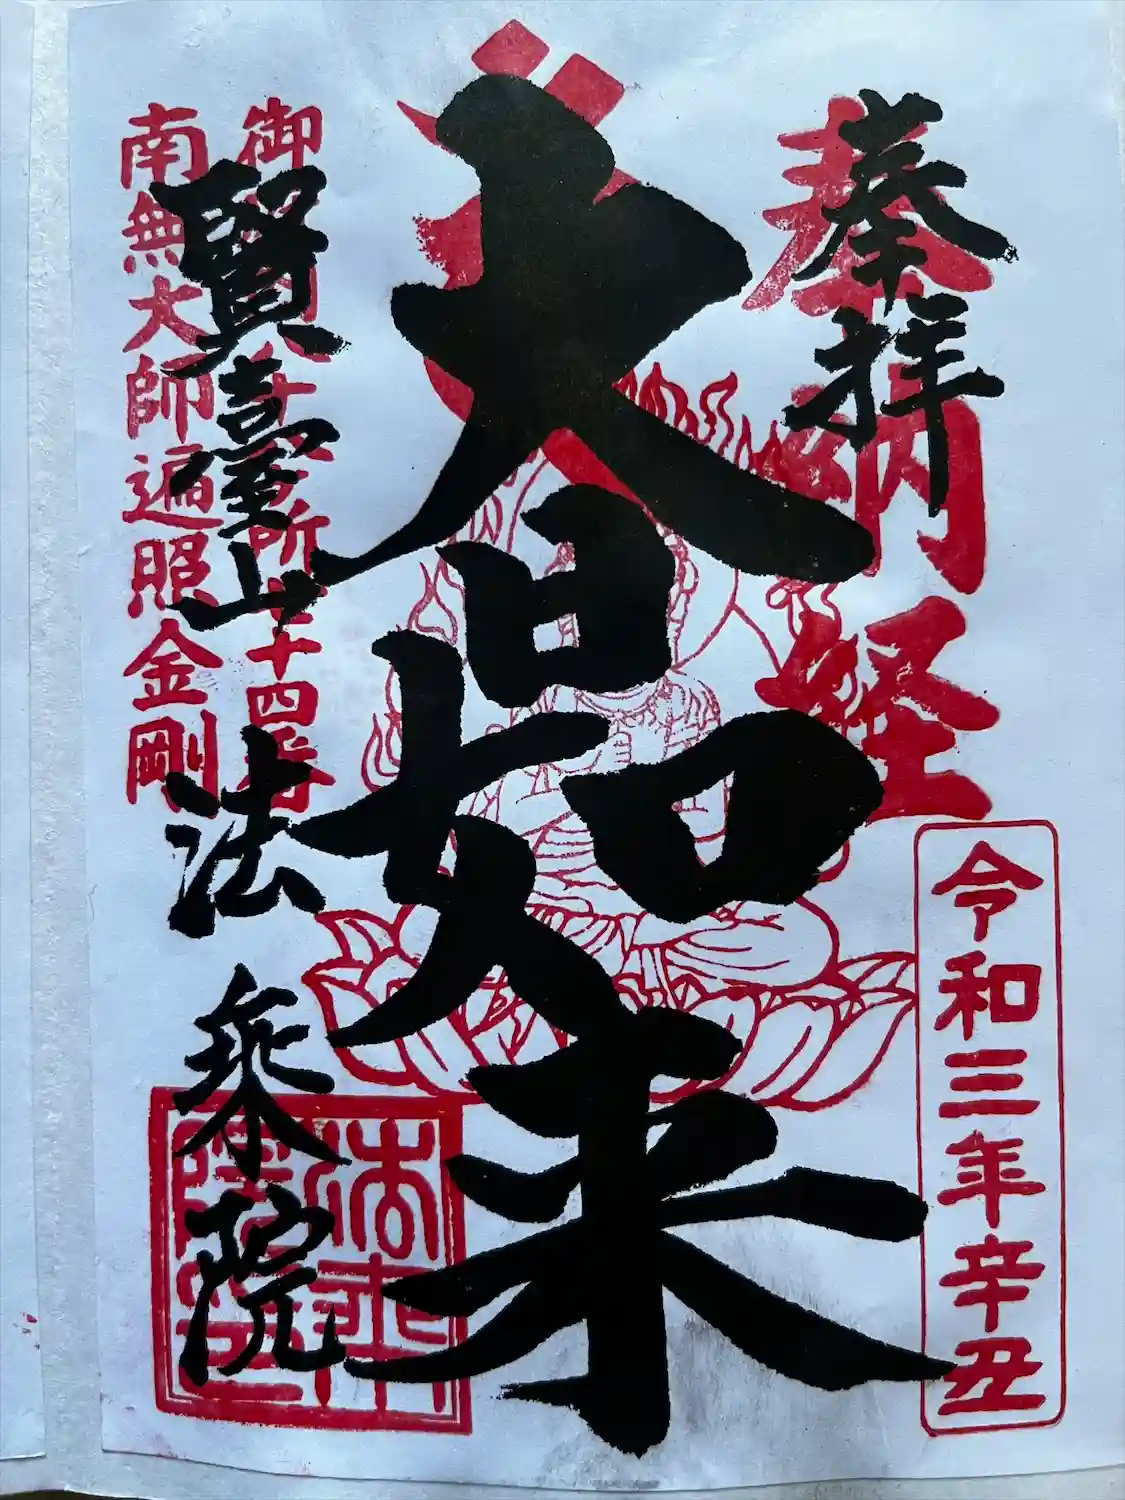 奉拝
奉納経
令和三年辛丑
大日如来
賢臺山 法乗院
御 所七十四番
南無大師遍照金剛